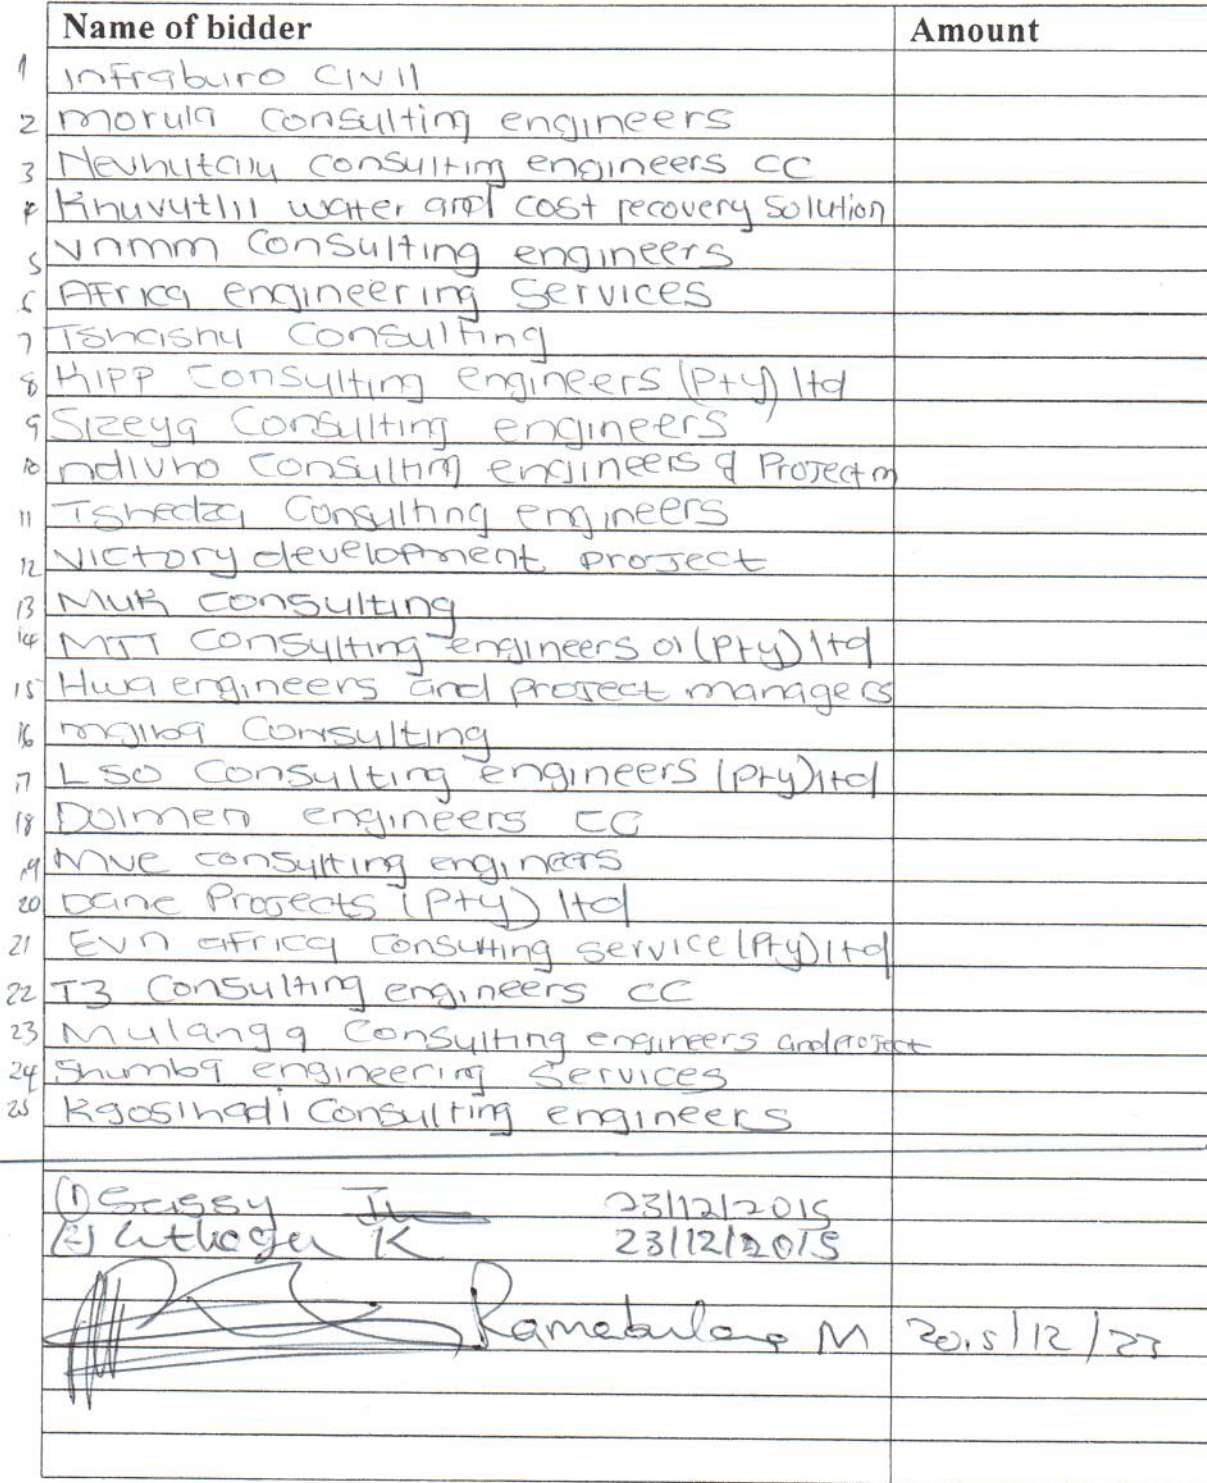 Name of bidder Amount
1 Infraburo CIVIl
2 morula consulting engineers
3 Nevhutalu consulting engineers CC
4 Khuvutlil water and cost recovery Solution
5 vnmm Consulting engineers
6 Africa engineering Services
7 Tshashu Consulting
8 KIPP Consulting engineers (Pty) ltd
9 Sizeya Consulting engineers
10 ndivho Consulting engineers & Project m
11 Tshedza Consulting engineers
12 Victory development project
13 Muk consulting
14 MTT Consulting engineers 01 (Pty) ltd
15 Hwa engineers and project managers
16 mgiba Consulting
17 LSO Consulting engineers (Pty) ltd
18 Dolmen engineers CC
19 Mve consulting engineers
20 Dane Projects (Pty) ltd
21 Evn africa consulting service (Pty) ltd
22 T3 Consulting engineers CC
23 Mulanga Consulting engineers and project
24 Shumba engineering Services
25 Kgosihadi Consulting engineers
(1) Sassy 23/12/2015
(2) K 23/12/2015
Ramabulana M 2015/12/23